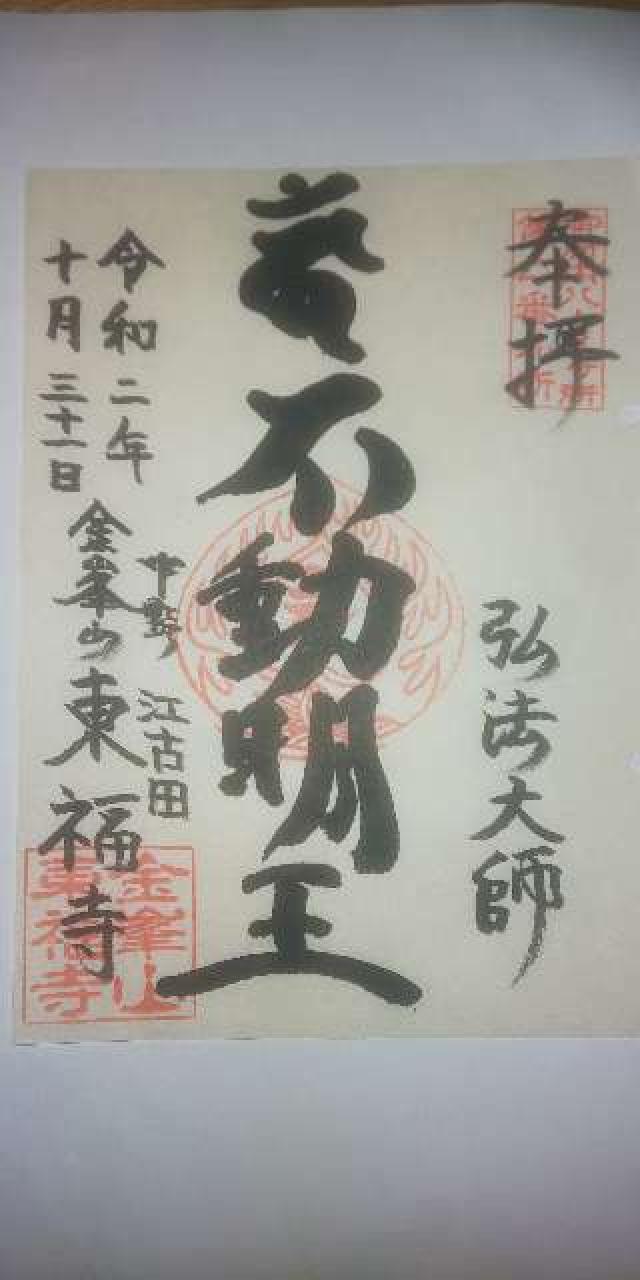 奉拝
弘法大師
不動明王
令和二年
十月三十一日
中野
江古田
金峯山東福寺
金峯山
東福寺